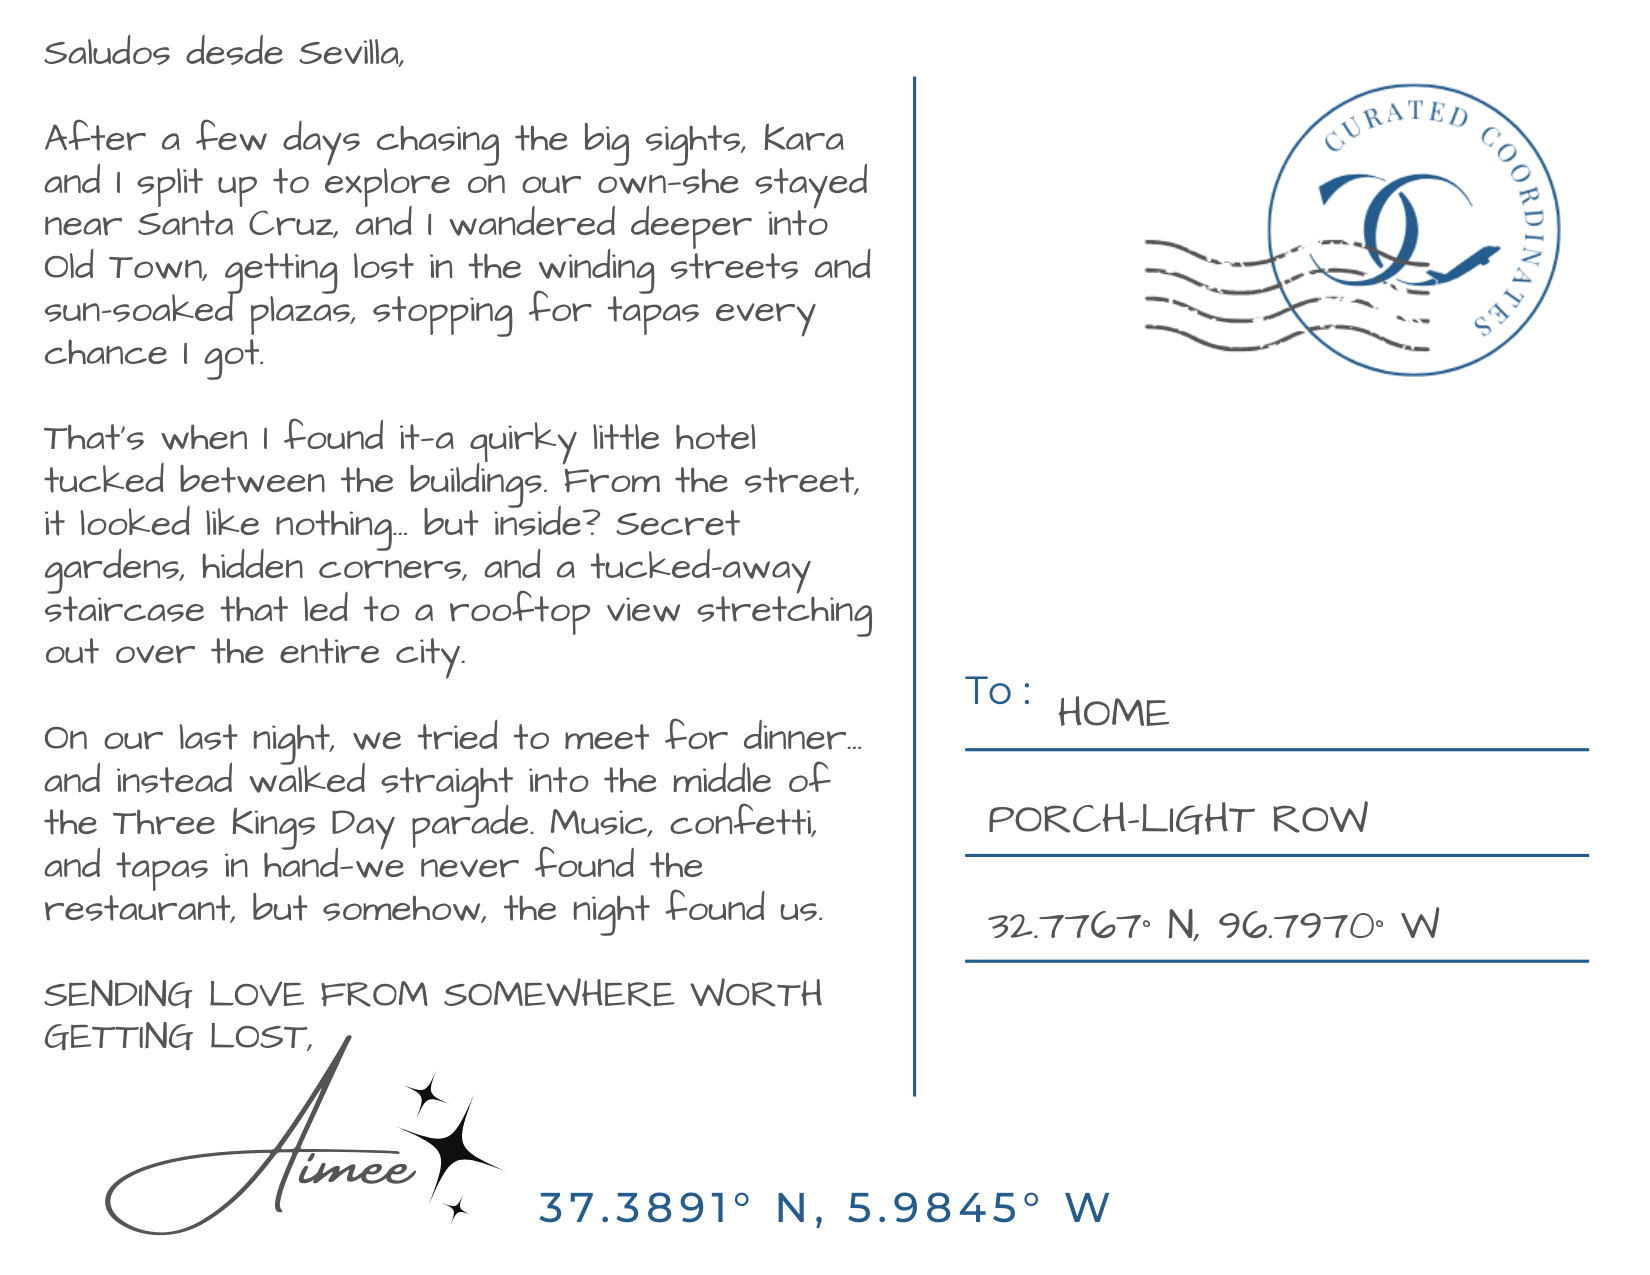 Saludos desde Sevilla,
After a few days chasing the big sights, Kara
and I split up to explore on our own-she stayed
near Santa Cruz, and I wandered deeper into
Old Town, getting lost in the winding streets and
sun-soaked plazas, stopping for tapas every
chance I got.
That's when I found it-a quirky little hotel
tucked between the buildings. From the street,
it looked like nothing... but inside? Secret
gardens, hidden corners, and a tucked-away
staircase that led to a rooftop view stretching
out over the entire city.
On our last night, we tried to meet for dinner...
and instead walked straight into the middle of
the Three Kings Day parade. Music, confetti,
and tapas in hand-we never found the
restaurant, but somehow, the night found us.
SENDING LOVE FROM SOMEWHERE WORTH
GETTING LOST,
Aimee
37.3891° N, 5.9845° W
CURATED COORDINATES
CC
To: HOME
PORCH-LIGHT ROW
32.7767° N, 96.7970° W